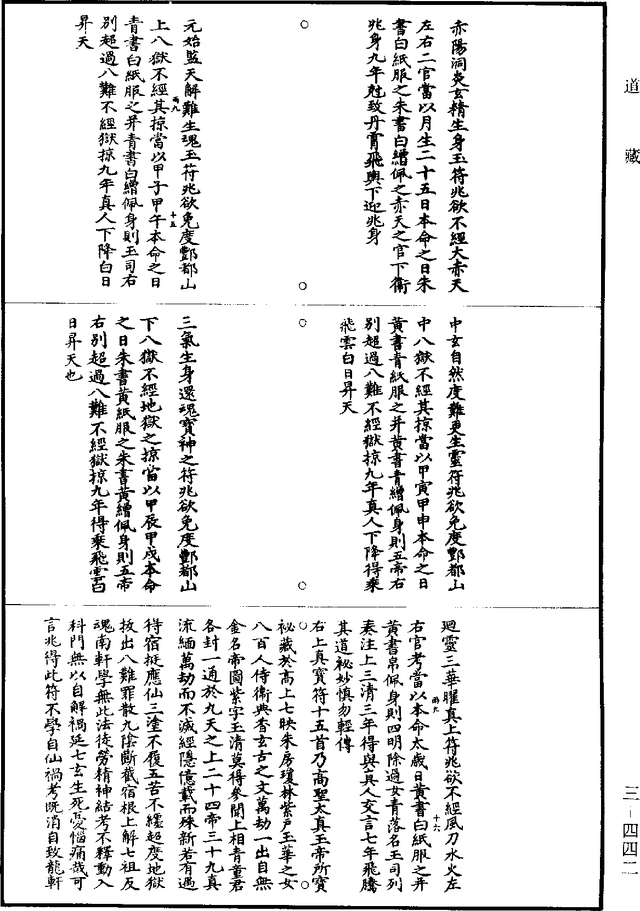 道藏
赤陽洞炎玄精生身玉符兆欲不經大赤天
左右二官當以月生二十五日本命之日朱
書白紙服之朱書白繒佩之赤天之官下衛
兆身九年剋致丹霄飛輿下迎兆身
元始監天解難生魂玉符兆欲免度酆都山
上八獄不經其掠當以甲子甲午本命之日
青書白紙服之并青書白繒佩身則玉司右
別超過八難不經獄掠九年真人下降白日
昇天
中玄自然度難更生靈符兆欲免度酆都山
中八獄不經其掠當以甲寅甲申本命之日
黃書青紙服之并黃書青繒佩身則五帝右
別超過八難不經獄掠九年真人下降得乘
飛雲白日昇天
三氣生身還魂寶神之符兆欲免度酆都山
下八獄不經地獄之掠當以甲辰甲戌本命
之日朱書黃紙服之朱書黃繒佩身則五帝
右別超過八難不經獄掠九年得乘飛雲白
日昇天也
迴靈三華曜真上符兆欲不經風刀水火左
右官考當以本命太歲日黃書白紙服之并
黃書帛佩身則四明除過女青落名玉司列
奏注上三清三年得與真人交言七年飛騰
其道祕妙慎勿輕傳
右上真寶符十五首乃高聖太真玉帝所寶
祕藏於高上七映朱房瓊林紫戶玉華之女
八百人侍衛典香玄古之文萬劫一出自無
金名帝圖紫字玉清莫得參聞上相青童君
各封一通於九天之上二十四帝三十九真
流緬萬劫而不滅經隱億載而殊新若有過
待宿挺應仙三塗不履五苦不纏超度地獄
拔出八難罪散九陰斷截宿根上解七祖反
魂南軒學無此法徒勞精神結考不釋動入
科門無以自解禍延七玄生死憂惱痛哉可
言兆得此符不學自仙禍考既消自致龍軒
三-四四二